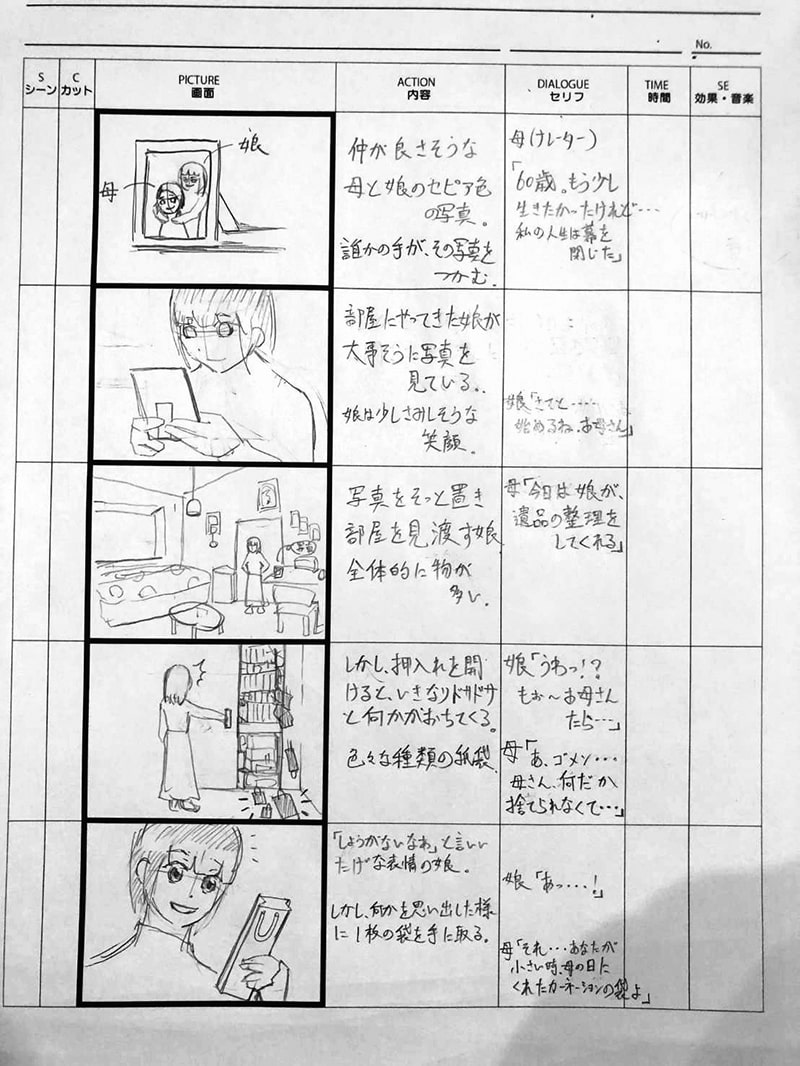 No.
S
シーン
C
カット
PICTURE
画面
ACTION
内容
DIALOGUE
セリフ
TIME
時間
SE
効果・音楽
娘
母
仲が良さそうな
母と娘のセピア色
の写真。
誰かの手が、その写真を
つかむ。
母(ナレーター)
「60歳。もう少し
生きたかったけれど…
私の人生は幕を
閉じた」
部屋にやってきた娘が
大事そうに写真を
見ている。
娘は少しさみしそうな
笑顔。
娘「さてと……
始めるね、お母さん」
写真をそっと置き
部屋を見渡す娘
全体的に物が
多い。
母「今日は娘が、
遺品の整理を
してくれる」
しかし、押入れを開
けると、いきなりドサドサ
と何かがおちてくる。
色々な種類の紙袋
娘「うわっ!?
もぉ〜お母さん
たら…」
母「あ、ゴメン…
母さん、何だか
捨てられなくて…」
「しょうがないなわ」と言いい
たげな表情の娘。
しかし、何かを思い出した様
に1枚の袋を手に取る。
娘「あっ…!」
母「それ…あなたが
小さい時、母の日に
くれたカーネーションの袋よ」